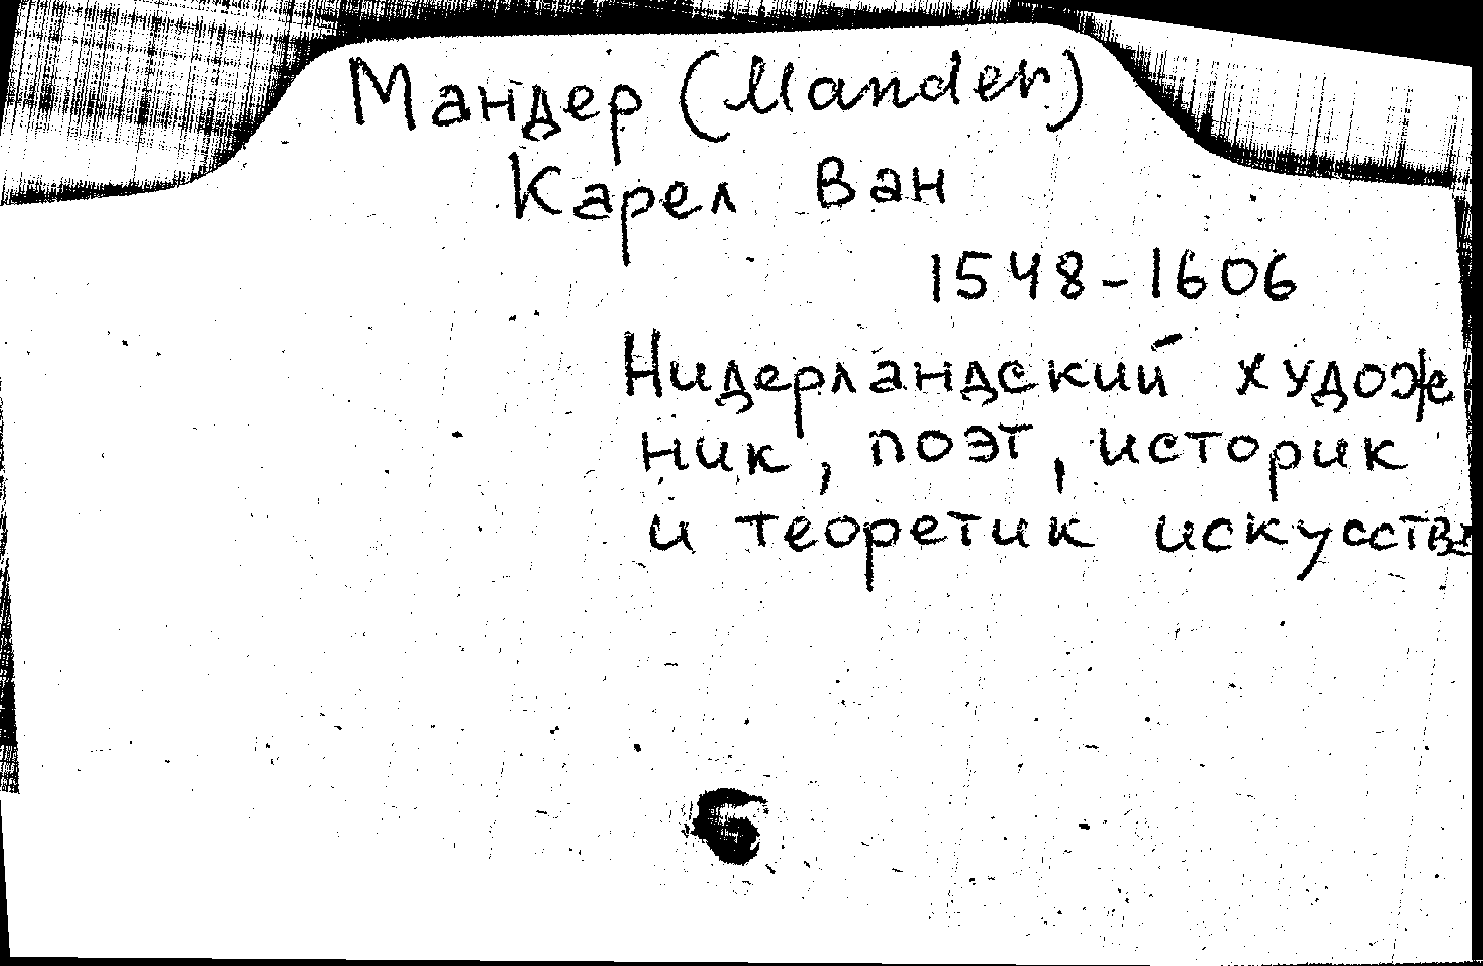 Мандер (Mander)
Карел Ван
1548-1606
Нидерландский худож
ник, поэт, историк
и теоретик искусства